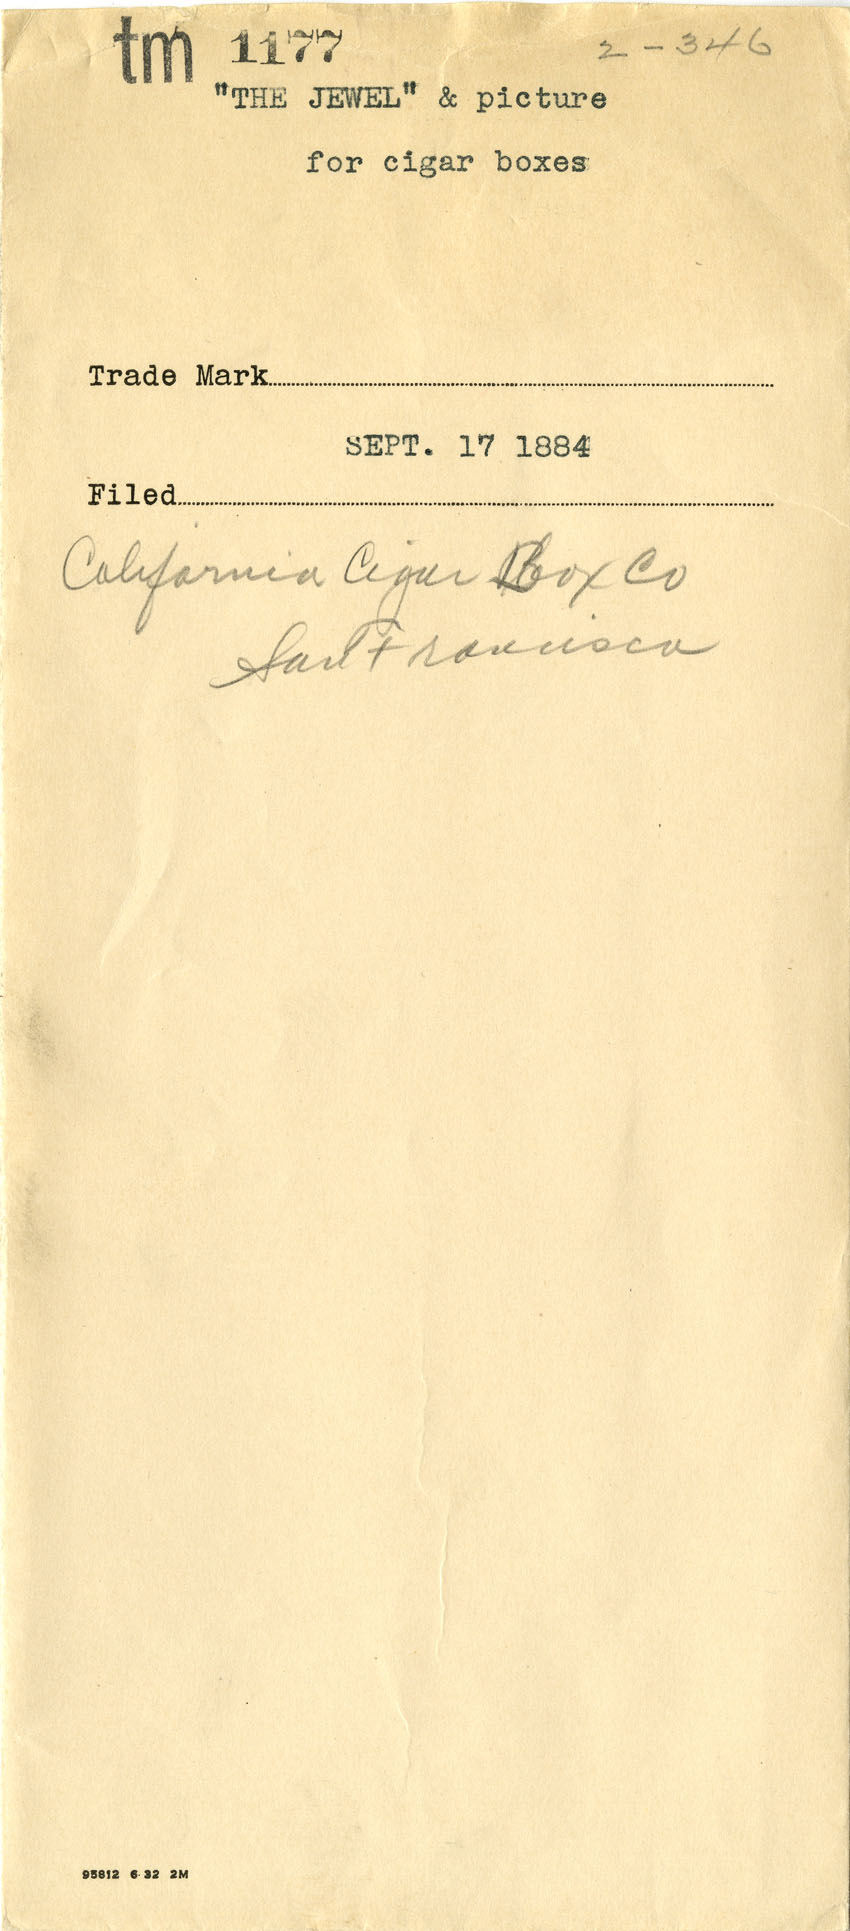 tm 1177 2-346
"THE JEWEL" & picture
for cigar boxes
Trade Mark
SEPT. 17 1884
Filed
California Cigar Box Co
San Francisco
95812 6-32 2M